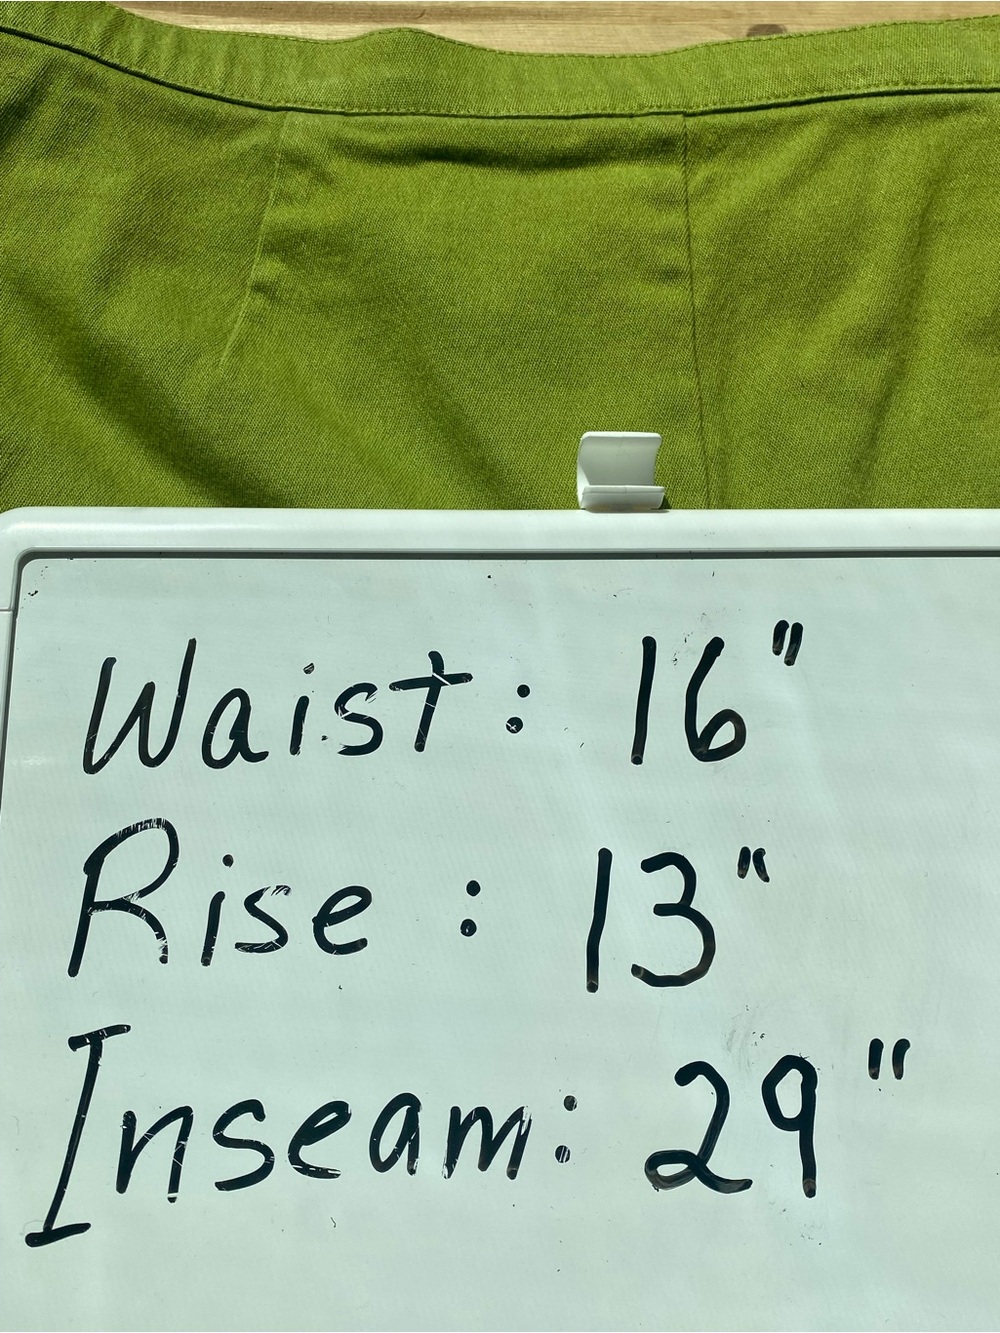 Waist: 16"
Rise: 13"
Inseam: 29"